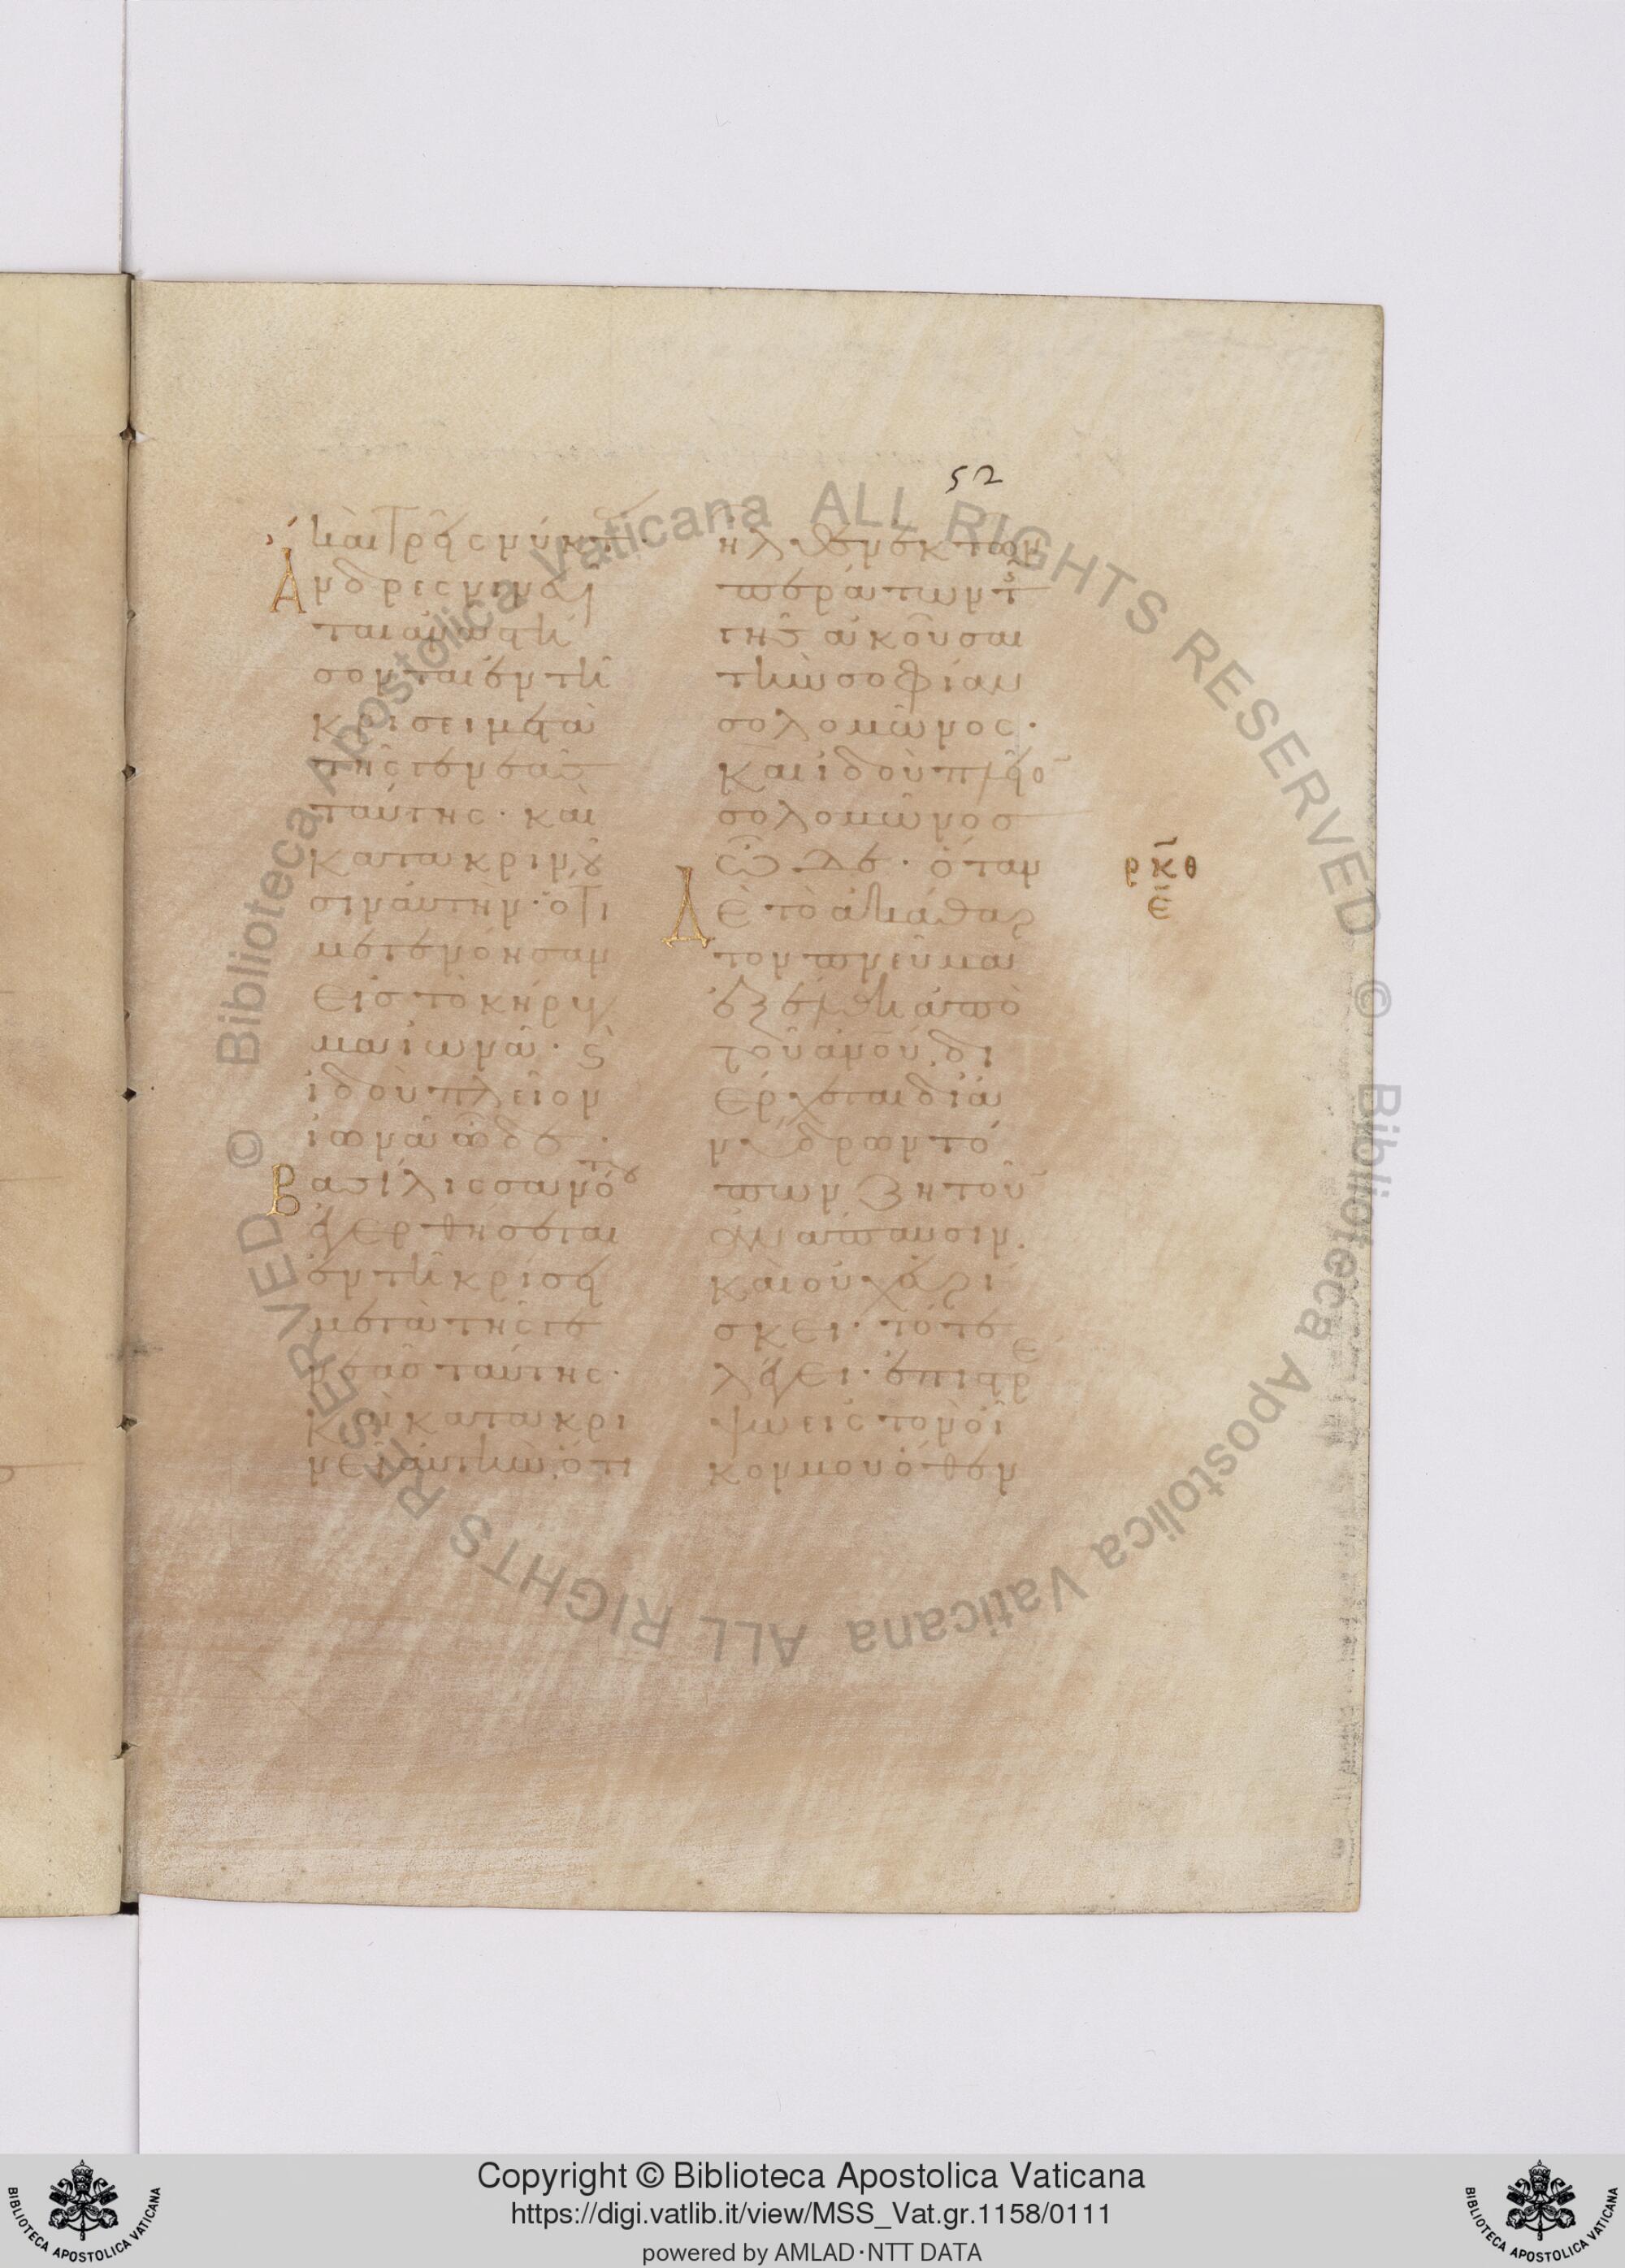 52
ἡμέρας κ̣ τρεῖς νύκτας·
Ἄνδρες νινευῖ
ται ἀναστή
σονται ἐν τῆ
κρίσει μετὰ
τῆς γενεᾶς
ταύτης· καὶ
κατακρινοῦ
σιν αὐτήν· ὅτι
μετενόησαν
εἰς τὸ κήρυγ
μα ἰωνᾶ· κ̣
ἰδοὺ πλεῖον
ἰωνᾶ ὧδε·
Βασίλισσα νότου
ἐγερθήσεται
ἐν τῆ κρίσει
μετὰ τῆς γε
νεᾶς ταύτης·
καὶ κατακρι
νεῖ αὐτήν· ὅτι
ἦλθεν ἐκ τῶν
περάτων τῆς
γῆς ἀκοῦσαι
τὴν σοφίαν
σολομῶνος·
Καὶ ἰδοὺ πλεῖον
σολομῶνος
ὧδε· ὅταν
Δὲ τὸ ἀκάθαρ
τον πνεῦμα
ἐξέλθη ἀπὸ
τοῦ ἀνου· δι
έρχεται δι' ἀ
νύδρων τό
πων ζητοῦν
ἀνάπαυσιν.
καὶ οὐχ εὑρί
σκει· τότε
λέγει· ἐπιστρέ
ψω εἰς τὸν οἶ
κόν μου ὅθεν
ρκθ
ε
Copyright © Biblioteca Apostolica Vaticana
https://digi.vatlib.it/view/MSS_Vat.gr.1158/0111
powered by AMLAD·NTT DATA